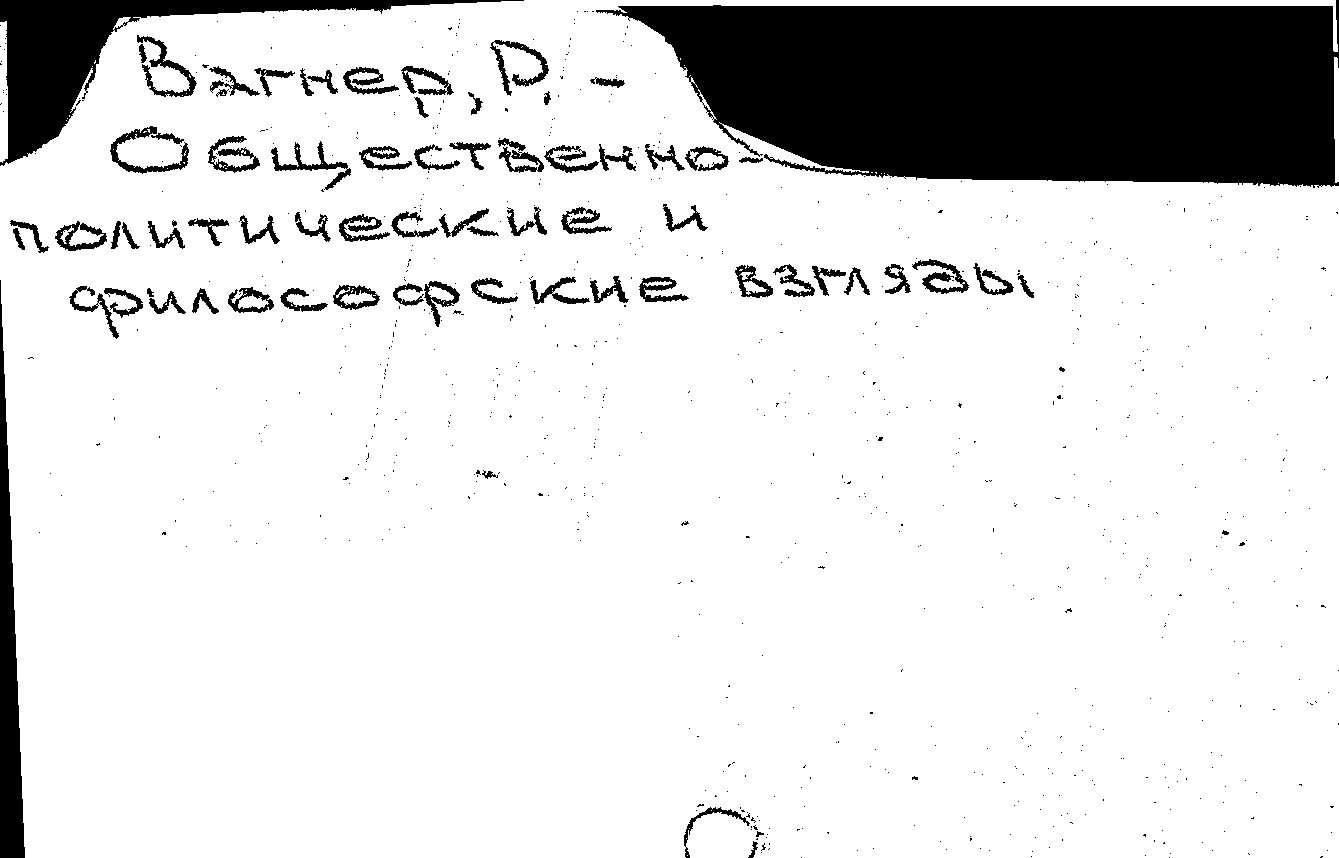 Вагнер, Р. -
Общественно-
политические и
философские взгляды